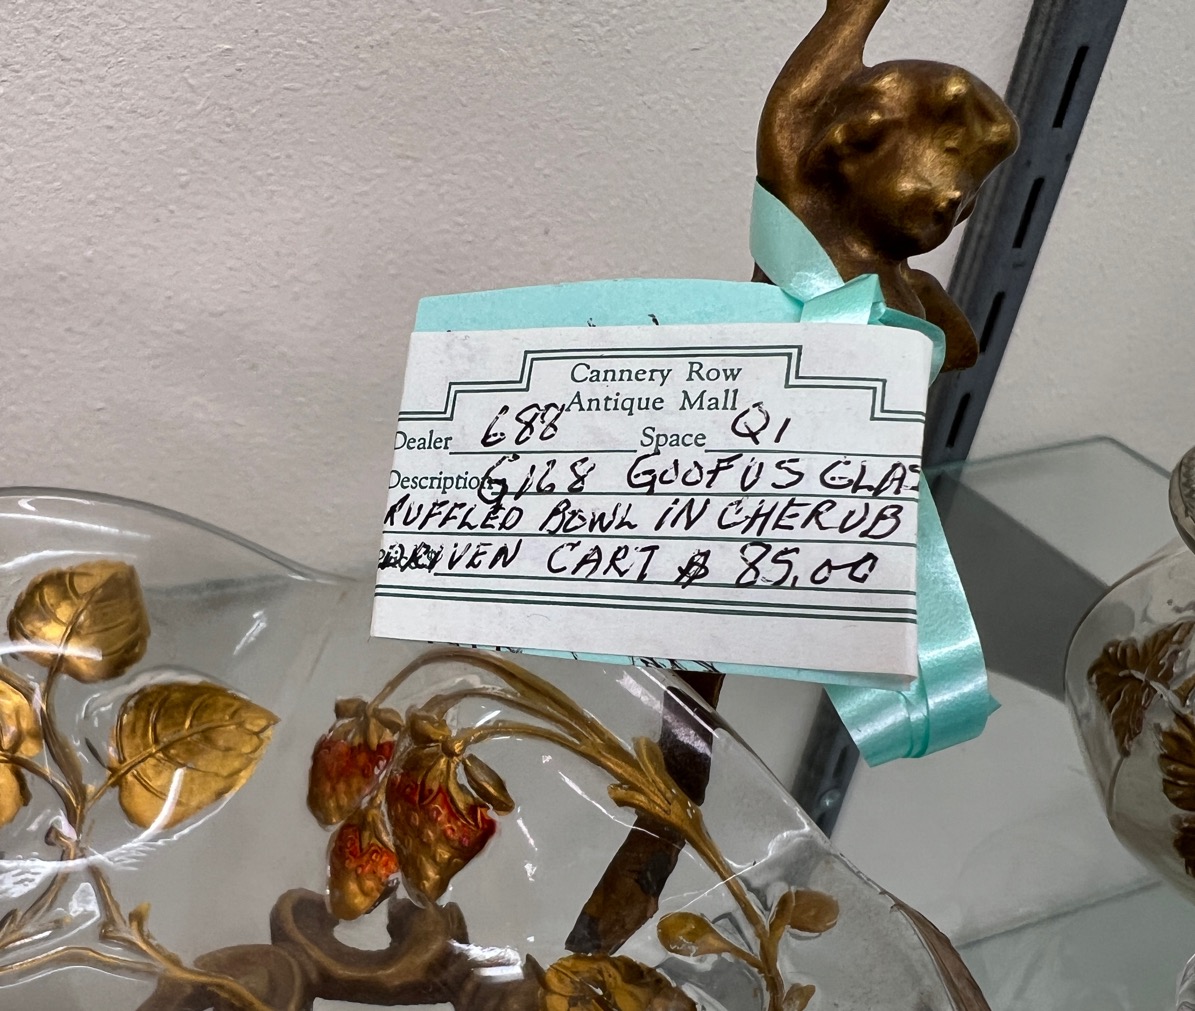 Cannery Row
Antique Mall
Dealer 688 Space Q1
Description G168 GOOFUS GLAS
RUFFLED BOWL IN CHERUB
DRIVEN CART $ 85.00